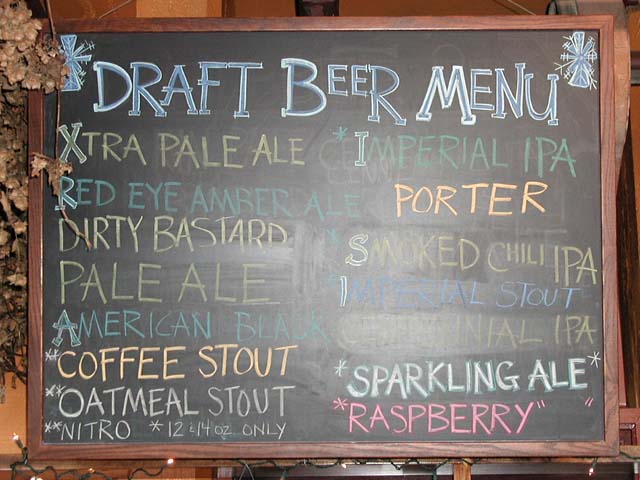 DRAFT BEER MENU
XTRA PALE ALE
RED EYE AMBER ALE
DIRTY BASTARD
PALE ALE
AMERICAN BLACK
*COFFEE STOUT
**OATMEAL STOUT
**NITRO *12 & 14 OZ. ONLY
*IMPERIAL IPA
PORTER
*SMOKED CHILI IPA
*IMPERIAL STOUT
CENTENNIAL IPA
*SPARKLING ALE*
*RASPBERRY" "